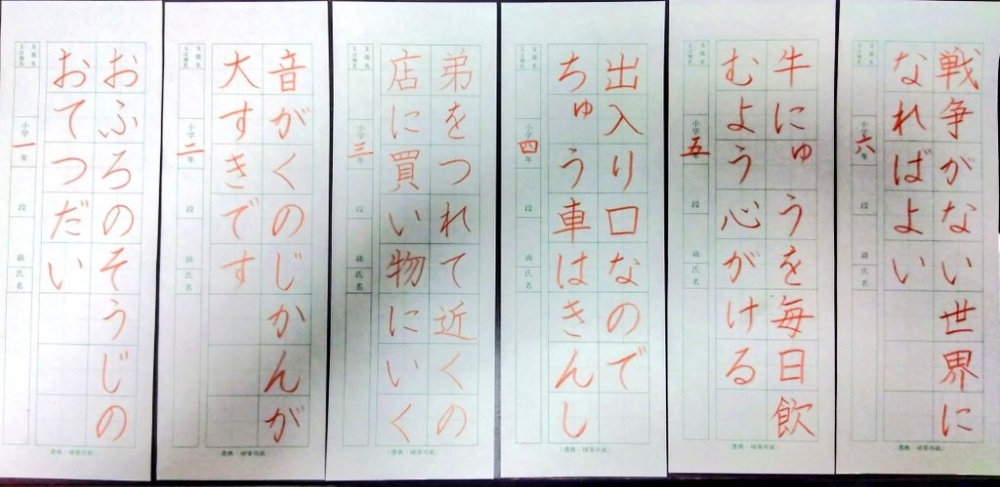 おふろのそうじの
おてつだい
小学一年
段
級
氏名
音がくのじかんが
大すきです
小学二年
段
級
氏名
弟をつれて近くの
店に買い物にいく
小学三年
段
級
氏名
出入り口なので
ちゅう車はきんし
小学四年
段
級
氏名
牛にゅうを毎日飲
むよう心がける
小学五年
段
級
氏名
戦争がない世界に
なればよい
小学六年
段
級
氏名